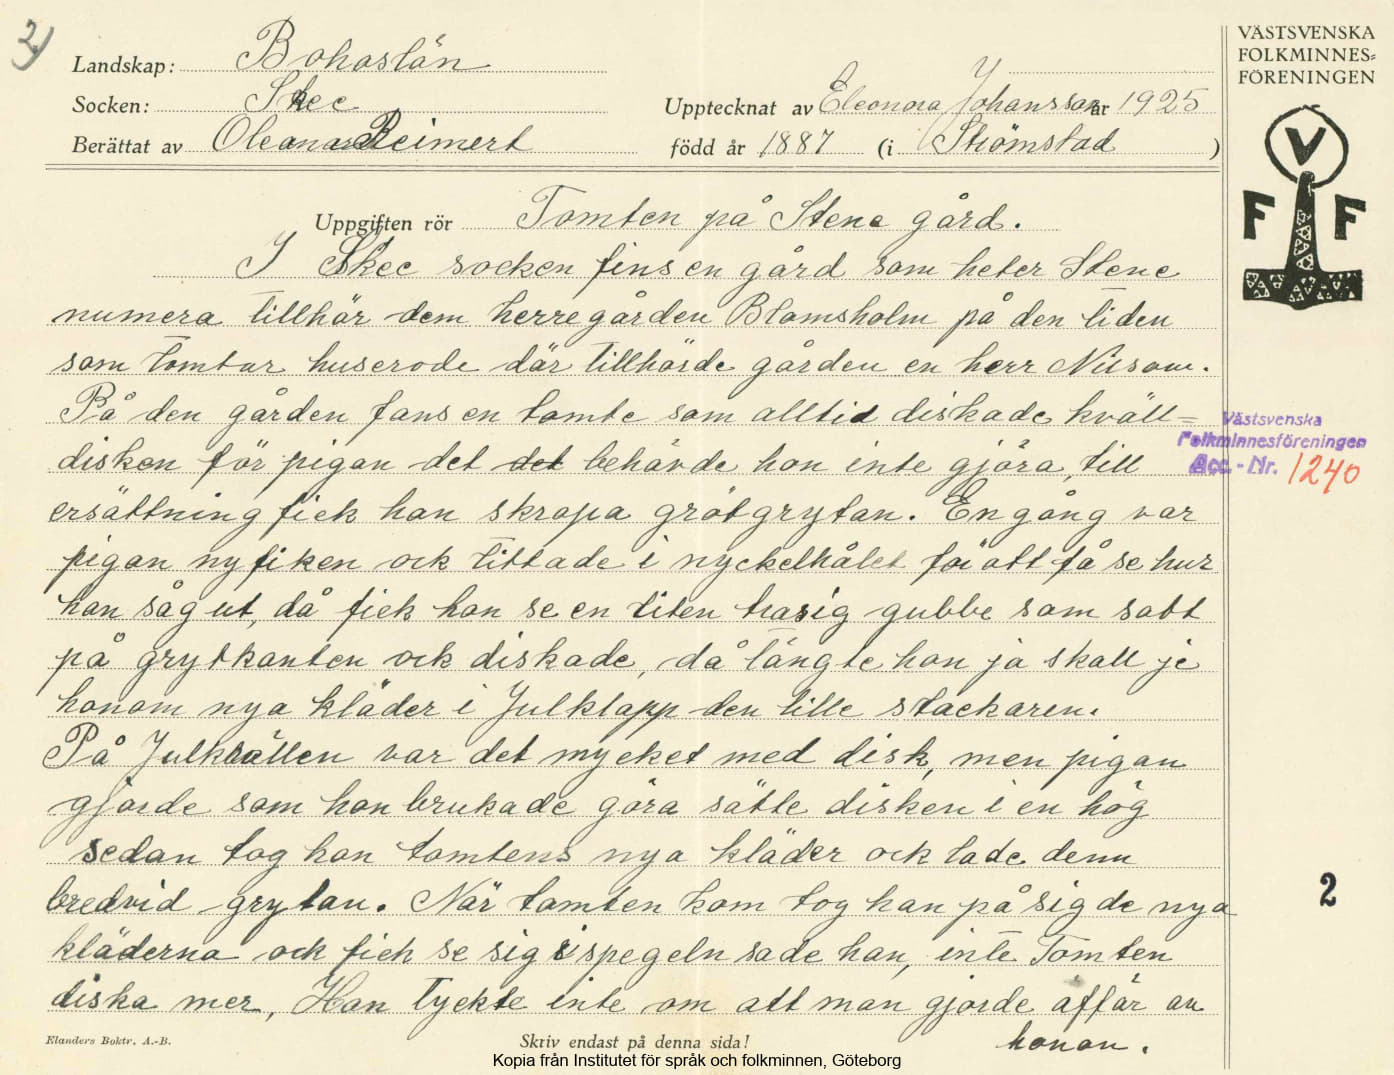 2)
Landskap: Bohoslän
Socken: Skee
Upptecknat av Eleonora Johansson år 1925
Berättat av Oleana Reimert
född år 1887 (i Strömstad)
VÄSTSVENSKA
FOLKMINNES=
FÖRENINGEN
V
F F
Uppgiften rör Tomten på Stene gård.
I Skee socken fins en gård som heter Stene
numera tillhör dem herregården Blomsholm på den tiden
som tomtar huserode där tillhörde gården en herr
På den gården fans en tomte som alltid diskade kväll=
disken för pigan det det behövde hon inte gjöra, till
ersättning fick han skropa grötgrytan. En gång var
pigan nyfiken ock tittade i nyckelhålet för att få se hur
han såg ut, då fick hon se en liten trasig gubbe som satt
på grytkanten ock diskade, då tängte hon ja skall je
honom nya kläder i Julklapp den lille stackaren.
På Julkvällen var det mycket med disk, men pigan
gjorde som hon brukade göra sätte disken i en hög
sedan tog hon tomtens nya kläder ock lade denn
bredvid grytan. När tomten kom tog han på sig de nya
kläderna ock fick se sig i spegeln sade han, inte Tomten
diska mer, Han tyckte inte om att man gjorde affär au
honom.
Västsvenska
Folkminnesföreningen
Acc.-Nr. 1240
2
Elanders Boktr. A.-B.
Skriv endast på denna sida!
Kopia från Institutet för språk och folkminnen, Göteborg